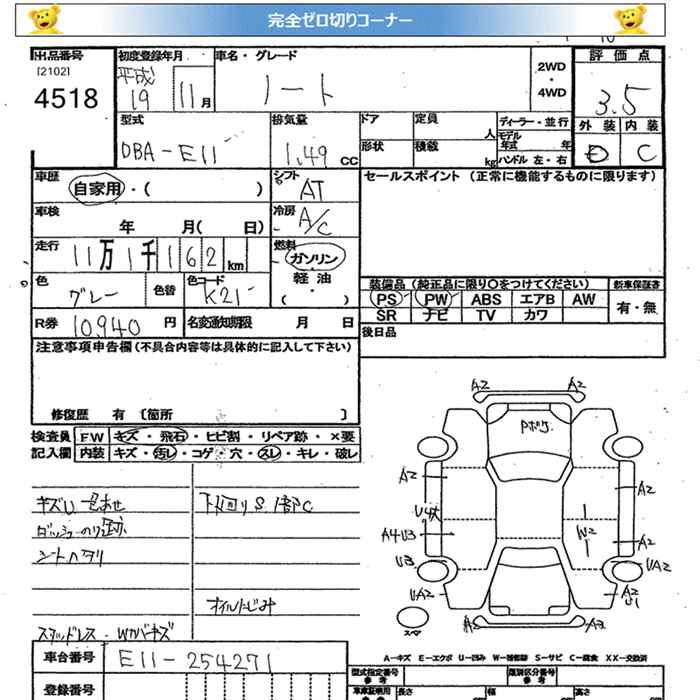 完全ゼロ切りコーナー
出品番号
[2102]
4518
初度登録年月
平成
19 11月
車名・グレード
ノート
2WD
・
4WD
評価点
3.5
型式
DBA-E11
排気量
1.49 CC
ドア
定員
人
形状
積載
kg
ディーラー・並行
モデル
年式 年
ハンドル 左・右
外装 内装
D C
車歴
自家用・( )
シフト
AT
セールスポイント (正常に機能するものに限ります)
車検
年 月( 日)
冷房
A/C
走行
11万1千162km
燃料
ガソリン
・
軽油
・
( )
色
グレー
色替
色コード
K21
装備品 (純正品に限り○をつけてください)
PS PW ABS エアB AW
SR ナビ TV カワ
新車保証書
有・無
R券 10940 円
名変通知期限 月 日
後日品
注意事項申告欄 (不具合内容等は具体的に記入して下さい)
修復歴 有 〔箇所 〕
検査員 FW キズ・飛石・ヒビ割・リペア跡・×要
記入欄 内装 キズ・汚レ・コゲ・穴・スレ・キレ・破レ
キズU 色あせ
下回りS 1部C
ダッシュのり跡
シートヘタリ
オイルにじみ
スタッドレス・Wカバーキズ
A2 A2
Pボケ
A2 A2
U4大
A4U3 W2 A2
U3 UA2
UA2 A2
U1
A2 A3
スペア
A-キズ E-エクボ U-凹み W-補修跡 S-サビ C-腐食 XX-交換済
車台番号 E11-254271
登録番号
型式指定番号
参考
類別区分番号
参考
車庫証明用
参考
長さ
幅
高さ
cm cm cm